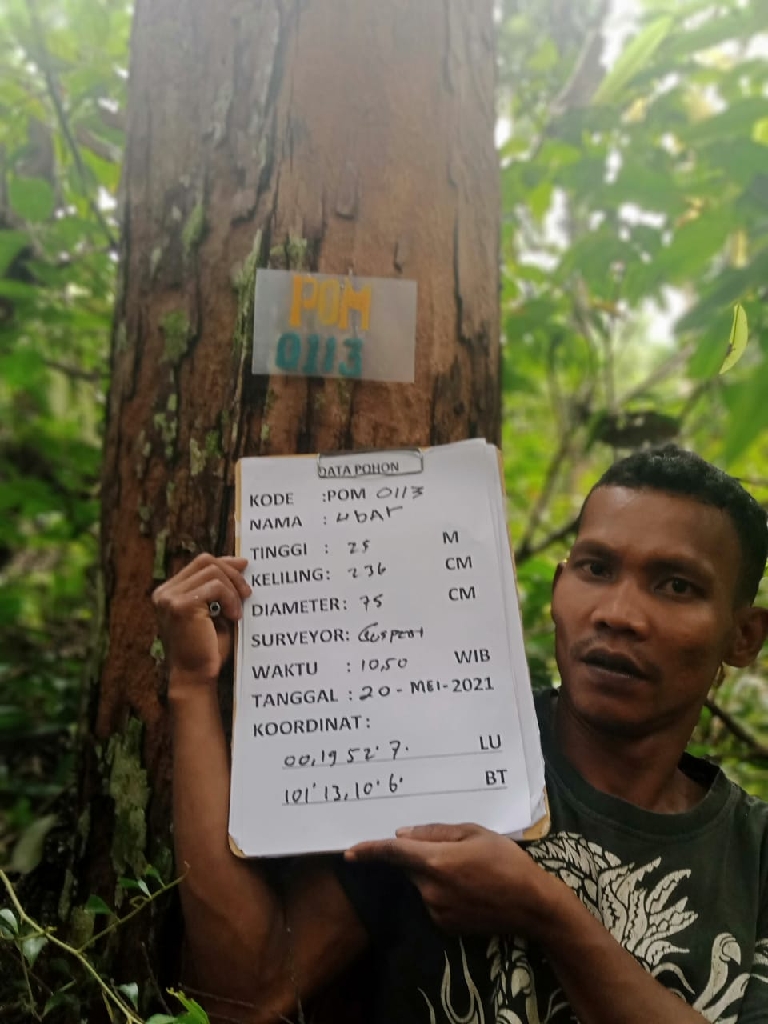 POM
0113
DATA POHON
KODE :POM 0113
NAMA : UBAR
TINGGI : 25 M
KELILING: 236 CM
DIAMETER: 75 CM
SURVEYOR:
WAKTU : 10,50 WIB
TANGGAL : 20 - MEI - 2021
KOORDINAT:
00,19 52' 7. LU
101' 13, 10' 6' BT